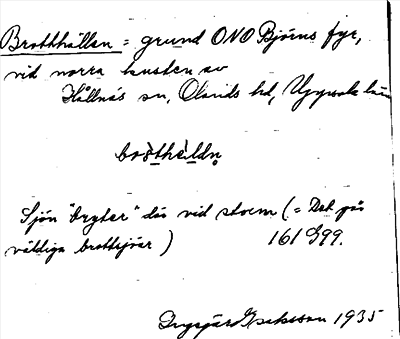 Brotthällan = grund ONO Björns fyr,
vid norra kusten av
Hållnäs sn, Olands hd, Uppsala län
Sjön "bryter" där vid storm (= Det går
väldiga brottsjöar) 161 G99.
Ingegärd Isaksson 1935